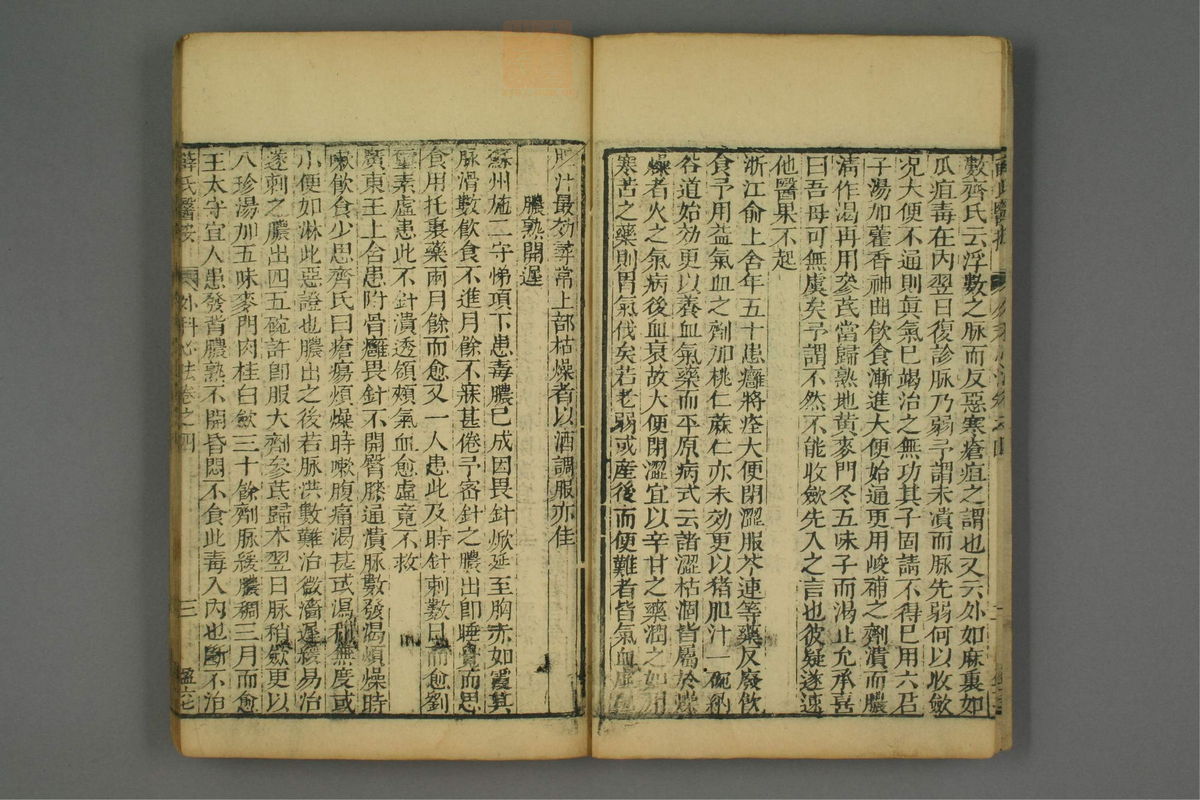 數齊氏云浮數之脉而反惡寒瘡疽之謂也又云外如麻裏如
瓜疽毒在内翌日復診脉乃弱予謂未潰而脉先弱何以收斂
况大便不通則真氣已竭治之無功其子固請不得已用六君
子湯加藿香神曲飲食漸進大便始通更用峻補之劑潰而膿
清作渴再用參芪當歸熟地黄麥門冬五味子而渴止允承喜
曰吾母可無虞矣予謂不然不能收斂先入之言也彼疑遂速
他醫果不起
浙江俞上舍年五十患癰將痊大便閉澀服芩連等藥反廢飲
食予用益氣血之劑加桃仁蔴仁亦未効更以猪胆汁一碗納
谷道始効更以養血氣藥而平原病式云諸澀枯涸皆屬於燥
燥者火之氣病後血衰故大便閉澀宜以辛甘之藥潤之如用
寒苦之藥則胃氣伐矣若老弱或産後而便難者皆氣血虚
胆汁最効尋常上部枯燥者以酒調服亦佳
膿熟開遲
蘇州施二守悌項下患毒膿已成因畏針焮延至胸赤如霞其
脉滑數飲食不進月餘不寐甚倦予密針之膿出即睡覺而思
食用托裏藥兩月餘而愈又一人患此及時針刺數日而愈劉
玺素虚患此不針潰透頷頰氣血愈虚竟不救
廣東王上舍患附骨癰畏針不開臀膝通潰脉數發渴煩燥時
嗽飲食少思齊氏曰瘡瘍煩燥時嗽腹痛渴甚或瀉利無度或
小便如淋此惡證也膿出之後若脉洪數難治微濇遲緩易治
遂刺之膿出四五碗許即服大劑參芪歸术翌日脉稍斂更以
八珍湯加五味麥門肉桂白斂三十餘劑脉緩膿稠三月而愈
王太守宜人患發背膿熟不開昏悶不食此毒入内也斷不治
薛氏醫按 外科心法卷之四 三